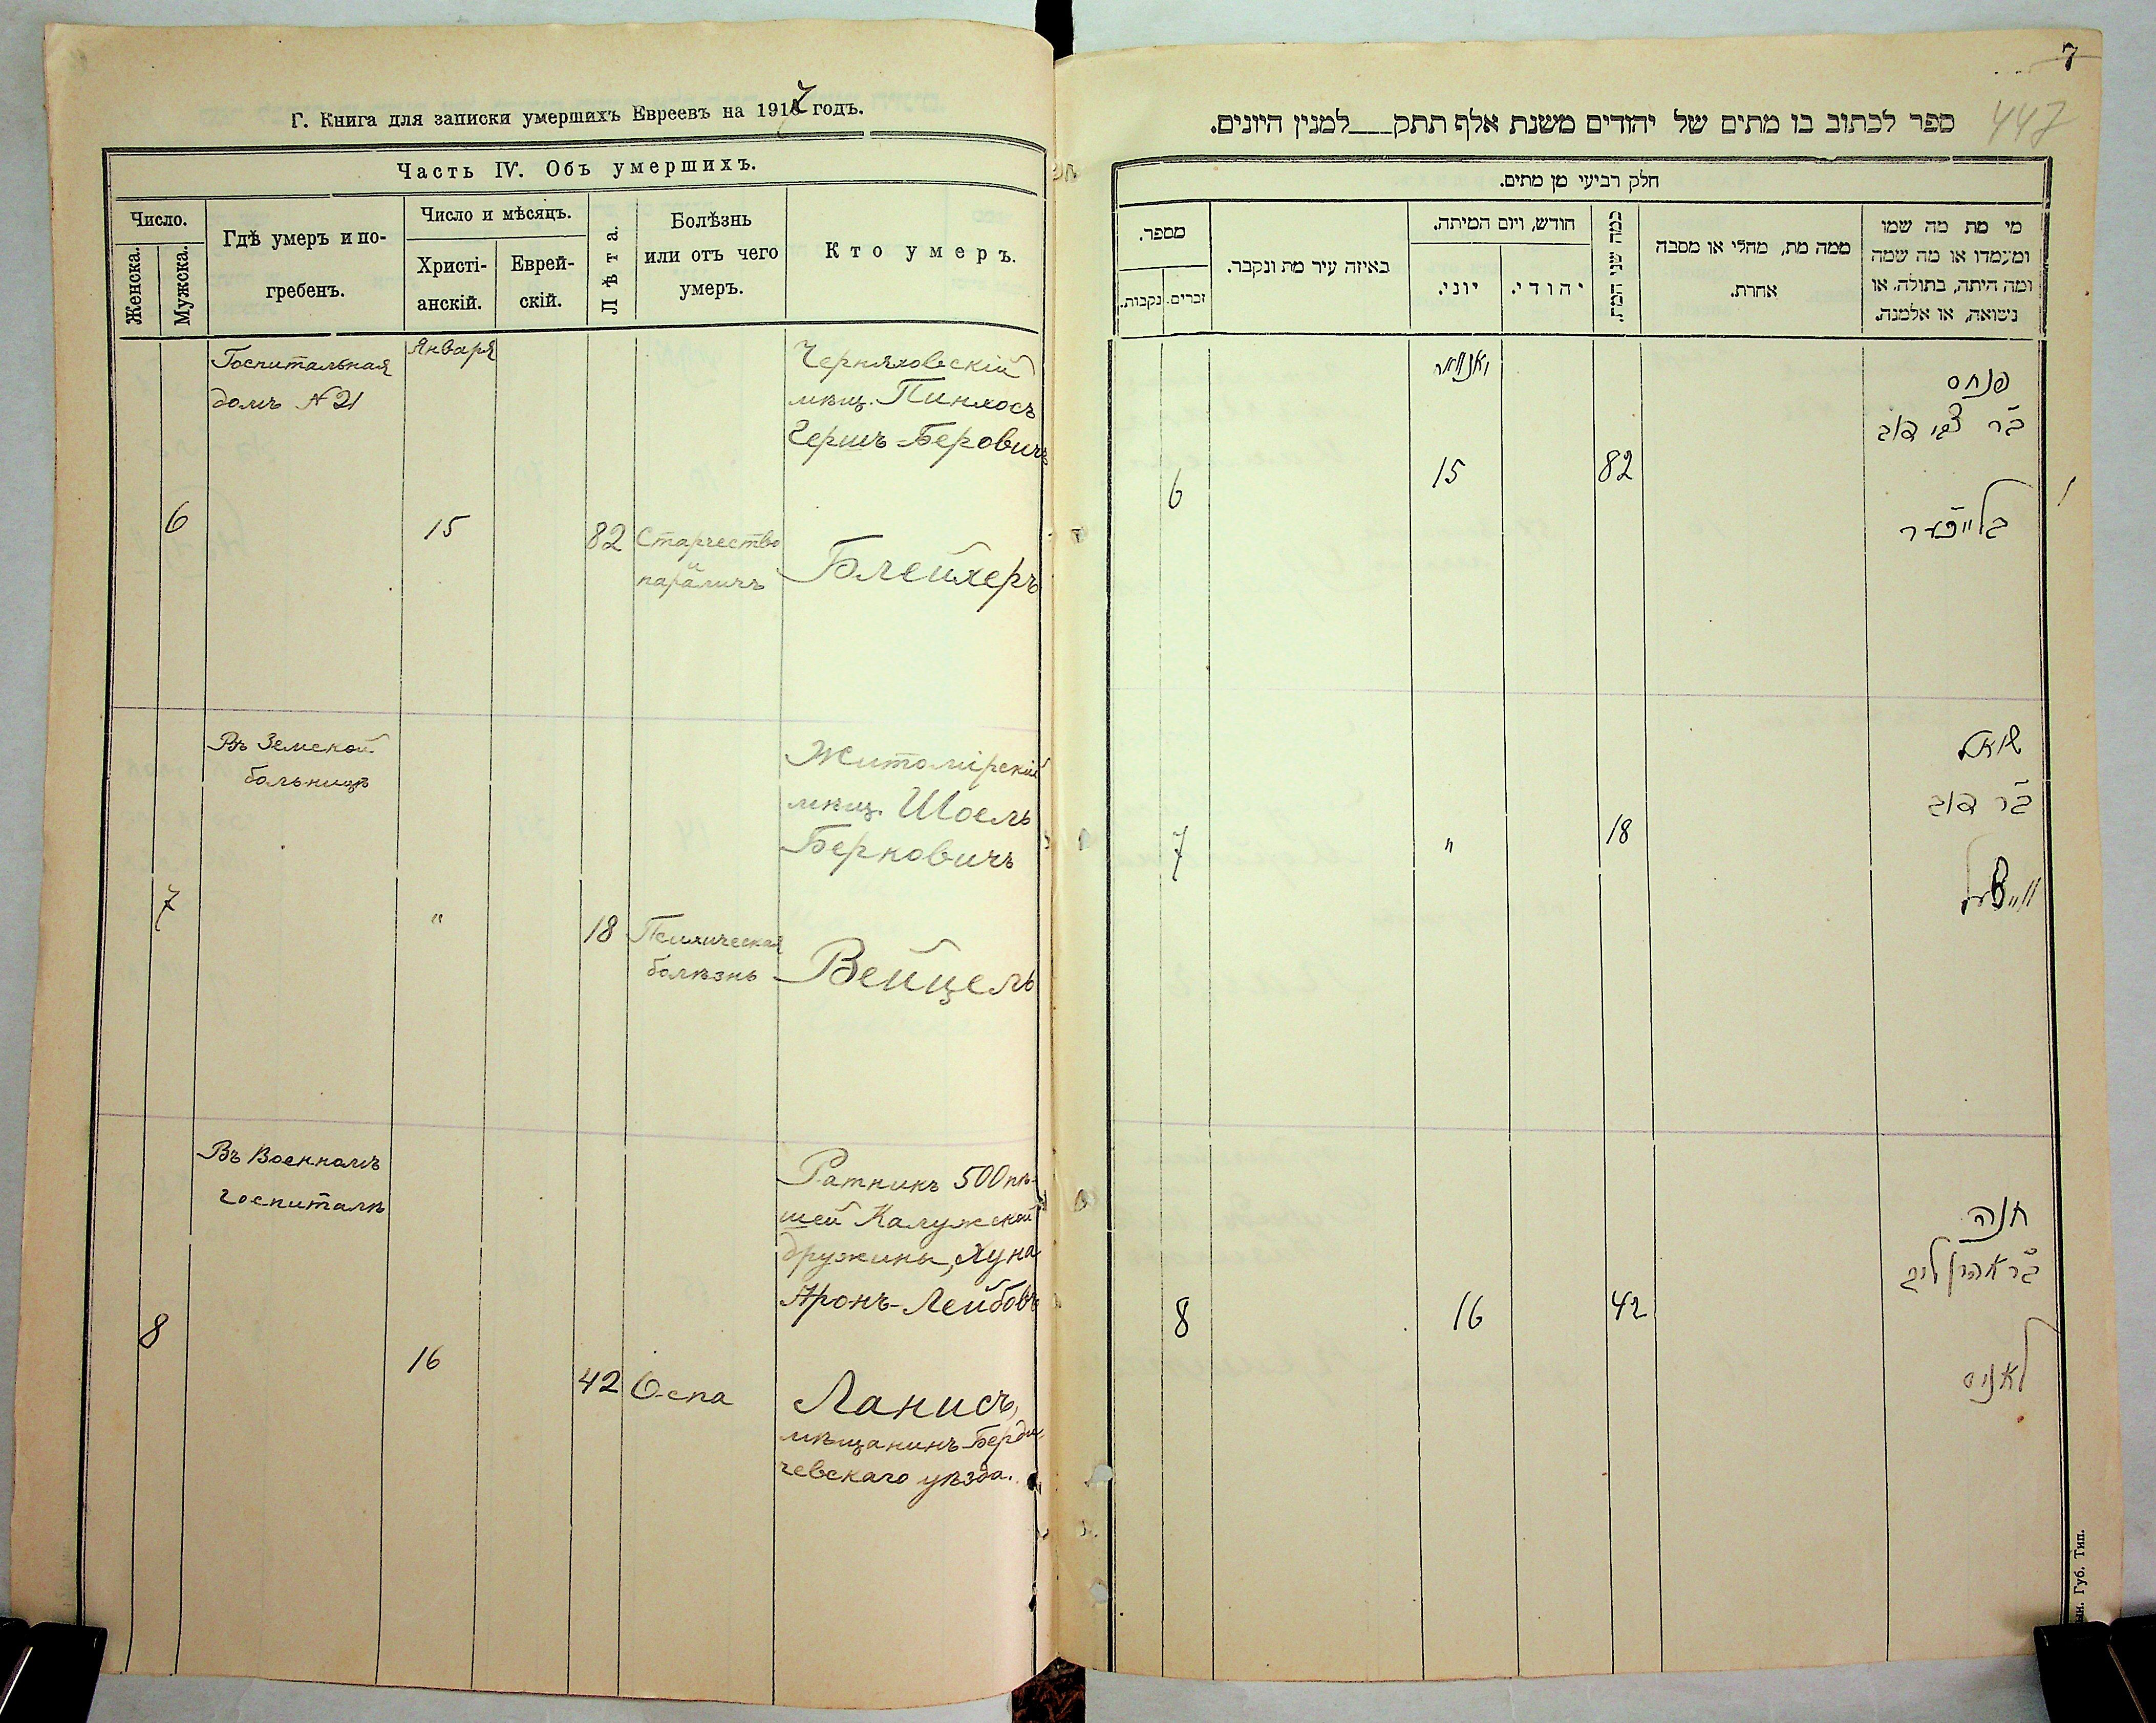 Г. Книга для записки умершихъ Евреевъ на 1917 годъ.
Часть IV. Объ умершихъ.
Число.
Женска.
Мужска.
Гдѣ умеръ и по-
гребенъ.
Число и мѣсяцъ.
Христі-
анскій.
Еврей-
скій.
Лѣта.
Болѣзнь
или отъ чего
умеръ.
Кто умеръ.
Госпитальная
домъ № 21
Января
Черняховскій
мѣщ. Пинхосъ
Гершъ-Беровичъ
6
15
82
Старчество
и
параличъ
Блейхеръ
Въ Земской
больницѣ
Житомірскій
мѣщ. Шоель
Берковичъ
7
"
18
Психическая
болѣзнь
Вейцель
Въ Военномъ
госпиталѣ
Ратникъ 500 пѣ-
шей Калужской
дружины, Хуна
Аронъ-Лейбовъ
8
16
42
Оспа
Ланисъ,
мѣщанинъ Берди-
чевскаго уѣзда.
7
447
ספר לכתוב בו מתים של יהודים משנת אלף תתק___למנין היונים.
חלק רביעי מן מתים.
מי מת מה שמו
ומעמדו או מה שמה
ומה היתה, בתולה, או
נשואה, או אלמנה.
ממה מת, מחלי או מסבה
אחרת.
כמה שני המת.
חודש, ויום המיתה.
יהודי.
יוני.
באיזה עיר מת ונקבר.
מספר.
זכרים.
נקבות.
יאנואר
פנחס
ב"ר צבי דוב
82
15
6
בלייכער
שואל
ב"ר דוב
18
"
7
ווייצעל
חנה
ב"ר אהרן ליב
42
16
8
לאניס
Губ. Тип.